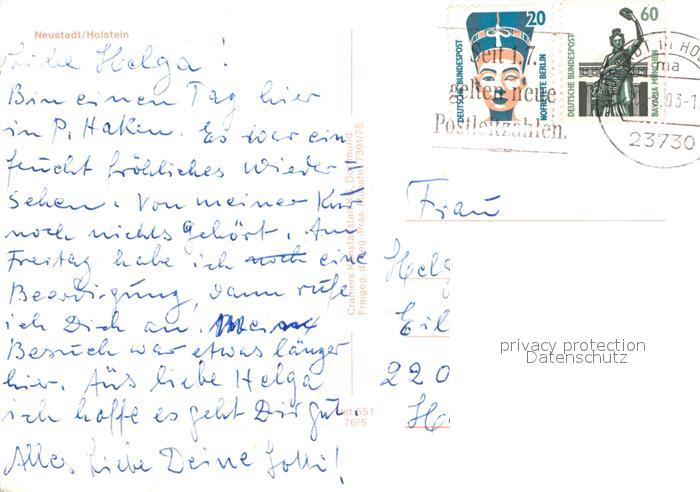 Neustadt/Holstein
Liebe Helga!
Bin einen Tag hier
in P. Haken. Es war ein
feucht fröhliches Wieder-
sehen. Von meiner Kur
noch nichts gehört. Am
Freitag habe ich noch eine
Beerdigung, dann rufe
ich Dich an. Mein
Besuch war etwas länger
hier. Tüs liebe Helga
ich hoffe es geht Dir gut.
Alles Liebe Deine Lotti!
Cramers Kunstanstalt Dortmund
Freigeg. d. Reg. Präs. Münster 7391/75
551
76/5
DEUTSCHE BUNDESPOST
20
NOFRETETE BERLIN
DEUTSCHE BUNDESPOST
60
BAVARIA MÜNCHEN
Seit 1.7.
gelten neue
Postleitzahlen.
IN HO
ma
93-1
23730
Frau
Helg
Eil
220
H
privacy protection
Datenschutz